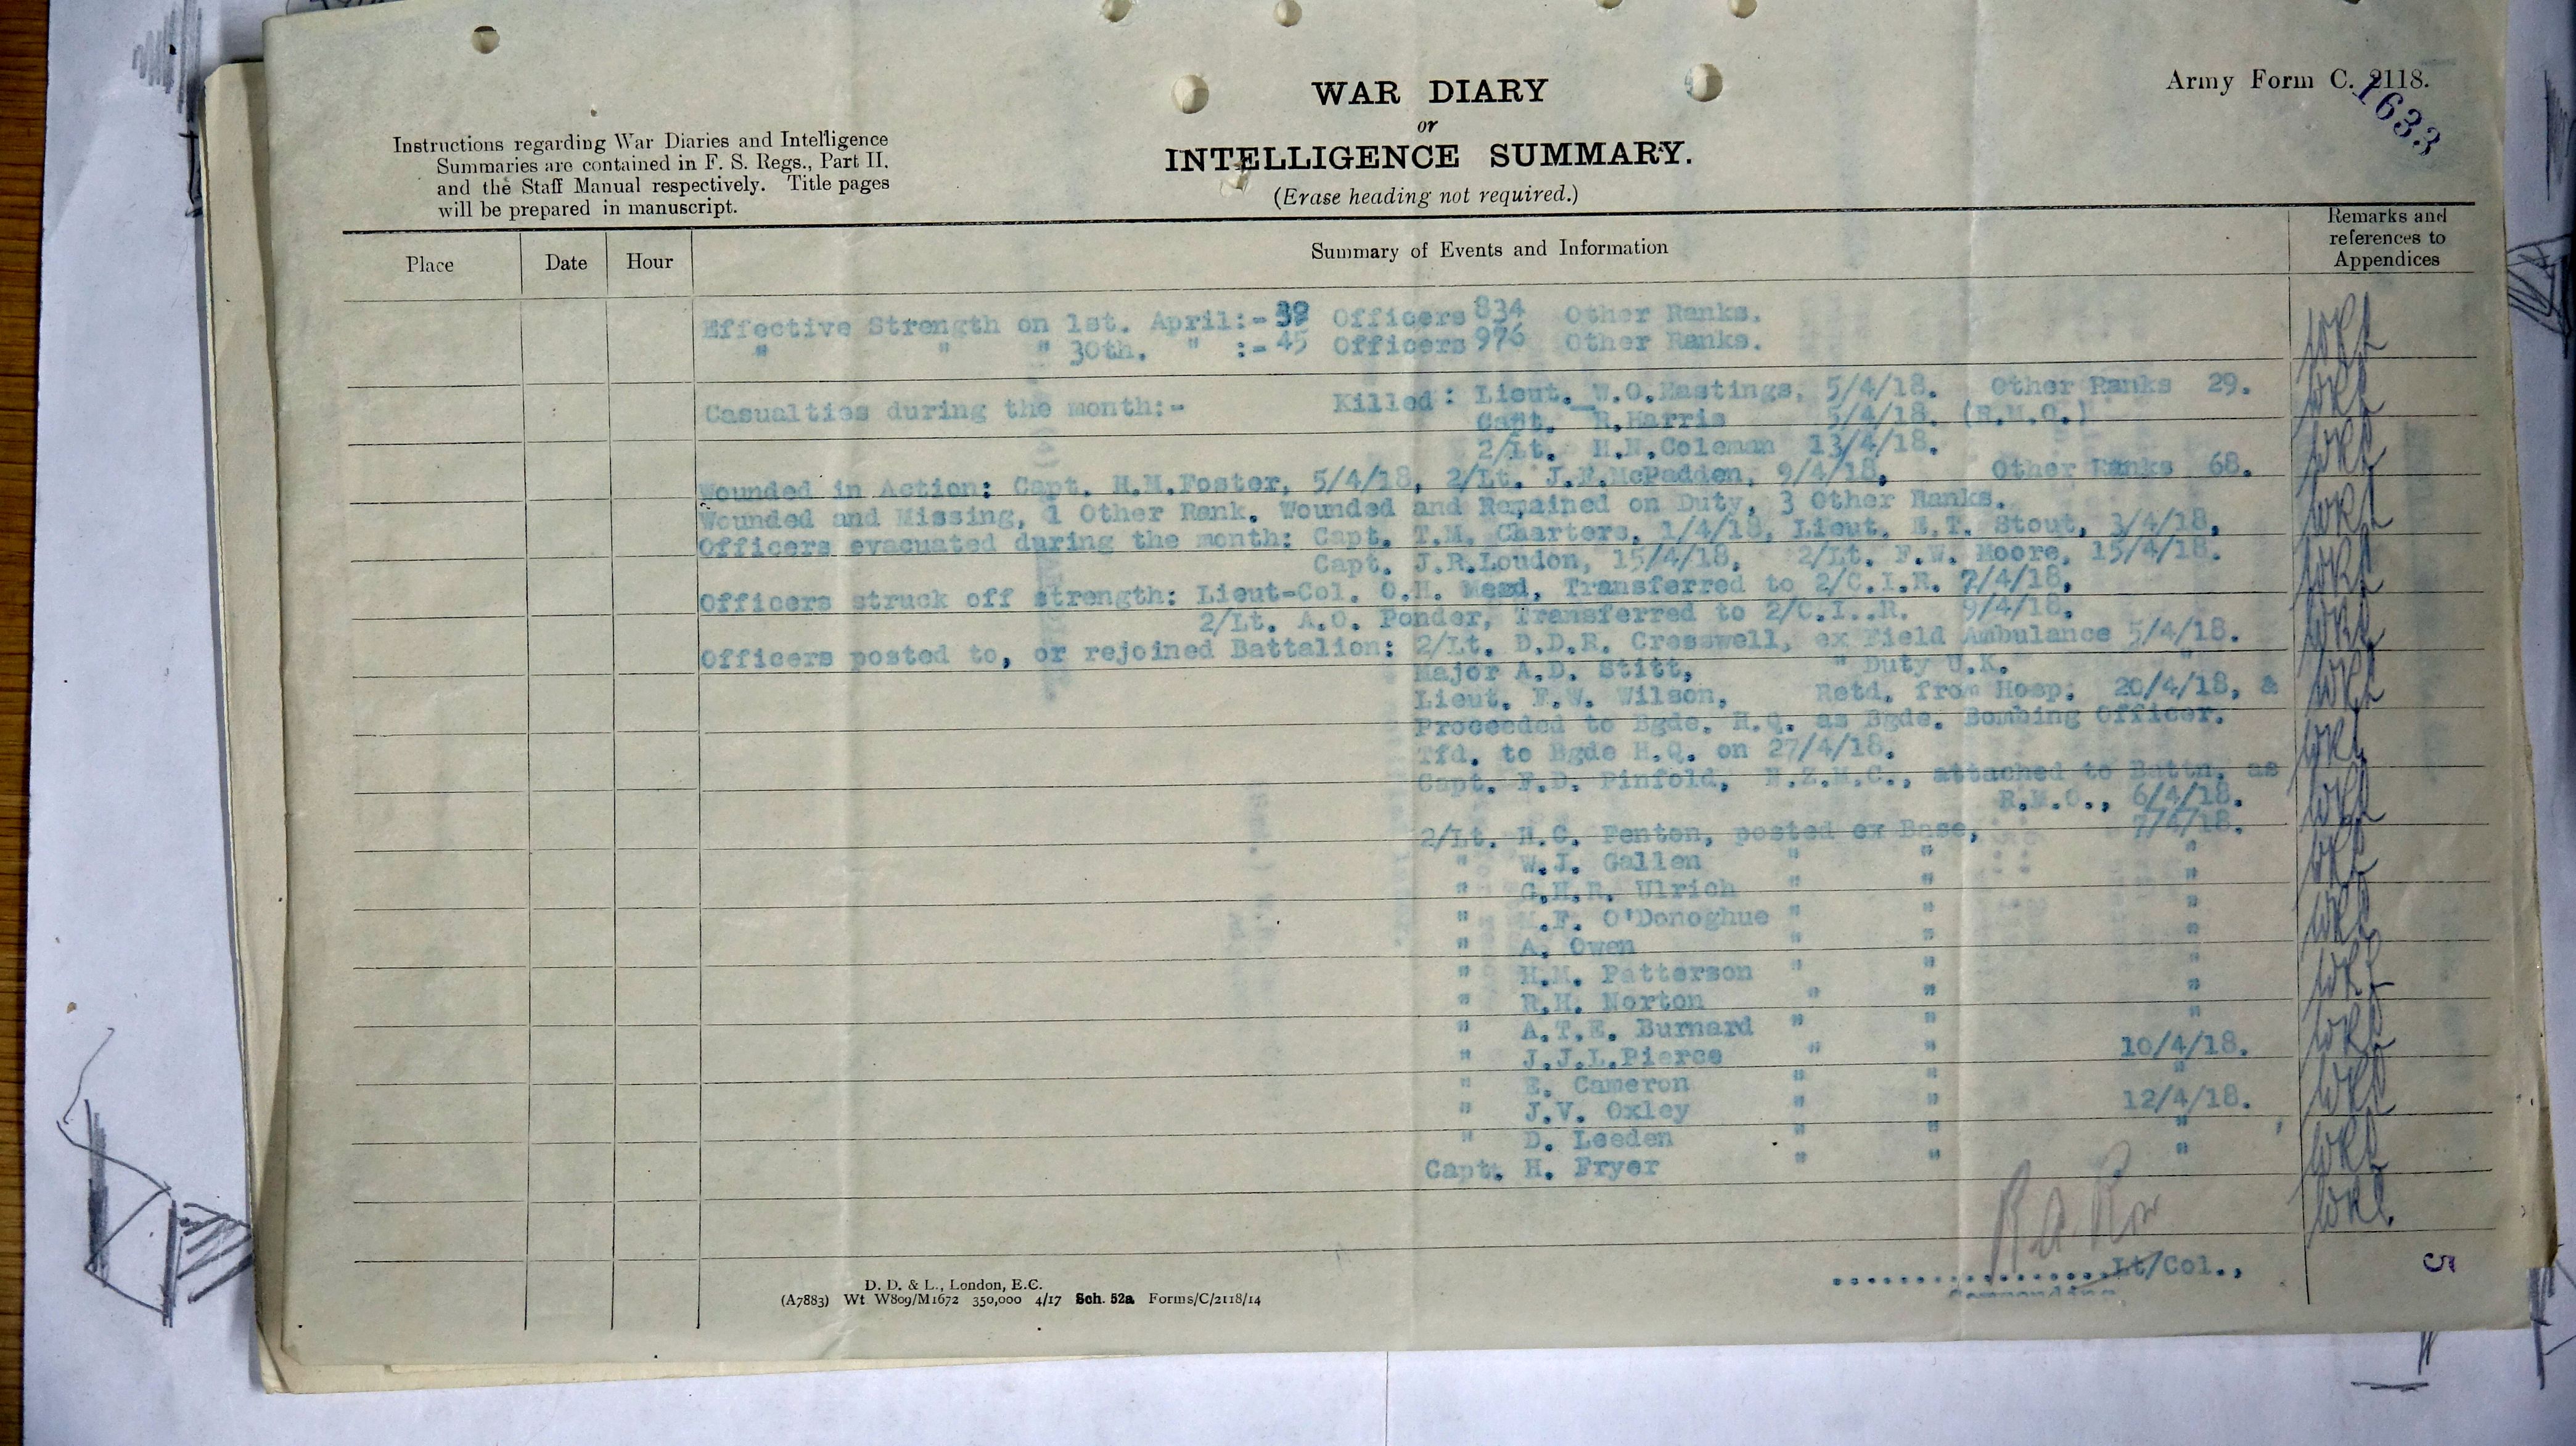 Army Form C. 2118.
1633
WAR DIARY
or
INTELLIGENCE SUMMARY.
(Erase heading not required.)
Instructions regarding War Diaries and Intelligence
Summaries are contained in F. S. Regs., Part II.
and the Staff Manual respectively. Title pages
will be prepared in manuscript.
Place Date Hour Summary of Events and Information Remarks and
references to
Appendices
Effective Strength on 1st. April:- Officers 834 Other Ranks.
" " " 30th. " :- 45 Officers 976 Other Ranks.
Casualties during the month:- Killed: Lieut. W.O.Hastings, 5/4/18. Other Ranks 29.
Capt. R.Harris 5/4/18. (R.M.O.)
2/Lt. H.N.Coleman 13/4/18.
Wounded in Action: Capt. H.M.Foster, 5/4/18, 2/Lt. J.F.McPadden, 9/4/18, Other Ranks 68.
Wounded and Missing, 1 Other Rank. Wounded and Remained on Duty, 3 Other Ranks.
Officers evacuated during the month: Capt. T.M. Charters, 1/4/18, Lieut. E.T. Stout, 3/4/18,
Capt. J.R.Loudon, 15/4/18, 2/Lt. F.W. Moore, 15/4/18.
Officers struck off strength: Lieut-Col. O.H. Mead, Transferred to 2/C.I.R. 7/4/18,
2/Lt. A.O. Ponder, Transferred to 2/C.I..R. 9/4/18.
Officers posted to, or rejoined Battalion: 2/Lt. D.D.R. Cresswell, ex Field Ambulance 5/4/18.
Major A.D. Stitt, " Duty U.K. "
Lieut. F.W. Wilson, Retd. from Hosp. 20/4/18, &
Proceeded to Bgde. H.Q. as Bgde. Bombing Officer.
Tfd. to Bgde H.Q. on 27/4/18.
Capt. F.D. Pinfold, N.Z.M.C., attached to Battn. as
R.M.O., 6/4/18.
2/Lt. H.C. Fenton, posted ex Base, 7/4/18.
" W.J. Gallen " " "
" G.H.R. Ulrich " " "
" .F. O'Donoghue " " "
" A. Owen " " "
" H.M. Patterson " " "
" R.H. Norton " " "
" A.T.E. Burnard " " "
" J.J.L.Pierce " " 10/4/18.
" E. Cameron " " "
" J.V. Oxley " " 12/4/18.
" D. Leeden " " "
Capt. H. Fryer " " "
..................Lt/Col.,
Commanding
5
D. D. & L., London, E.C.
(A7883) Wt W809/M1672 350,000 4/17 Sch. 52a Forms/C/2118/14